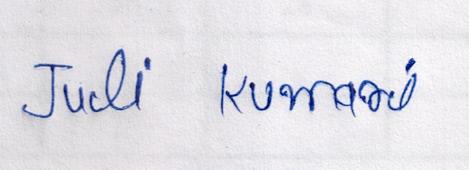 Judi Kumari